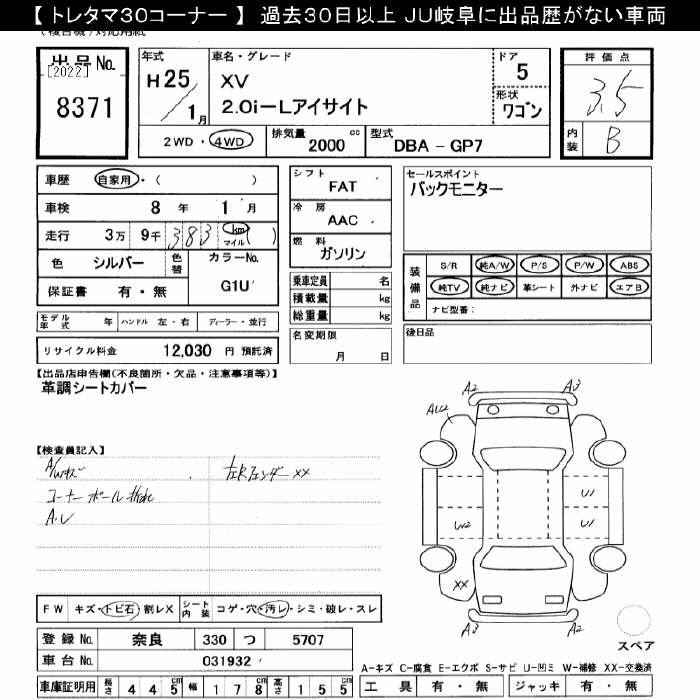 【 トレタマ30コーナー 】 過去30日以上 JU岐阜に出品歴がない車両
出品No.
[2022]
8371
年式
H25
1月
車名・グレード
XV
2.0i-Lアイサイト
ドア
5
形状
ワゴン
評価点
3.5
内装
B
2WD・4WD
排気量
2000 cc
型式
DBA - GP7
車歴 自家用・( )
車検 8 年 1 月
走行 3万 9千 383 km マイル ( )
色 シルバー 色替 カラーNo.
G1U
保証書 有・無
シフト
FAT
冷房
AAC
燃料
ガソリン
乗車定員 名
積載量 kg
総重量 kg
名変期限
月 日
セールスポイント
バックモニター
装備品
S/R 純A/W P/S P/W ABS
純TV 純ナビ 革シート 外ナビ エアB
ナビ型番:
後日品
モデル年式 年 ハンドル 左・右 ディーラー・並行
リサイクル料金 12,030 円 預託済
【出品店申告欄(不良箇所・欠品・注意事項等)】
革調シートカバー
【検査員記入】
A/Wキズ
左Rフェンダー XX
コーナーポール
A.U
A2
A3
AU2
U1
W2
U1
XX
A2
A2
スペア
FW キズ・トビ石・割レX シート内装 コゲ・穴・汚レ・シミ・破レ・スレ
登録No. 奈良 330 つ 5707
車台No. 031932
A-キズ C-腐食 E-エクボ S-サビ U-凹ミ W-補修 XX-交換済
車庫証明用 長さ 445 cm 幅 178 cm 高さ 155 cm
工具 有・無 ジャッキ 有・無